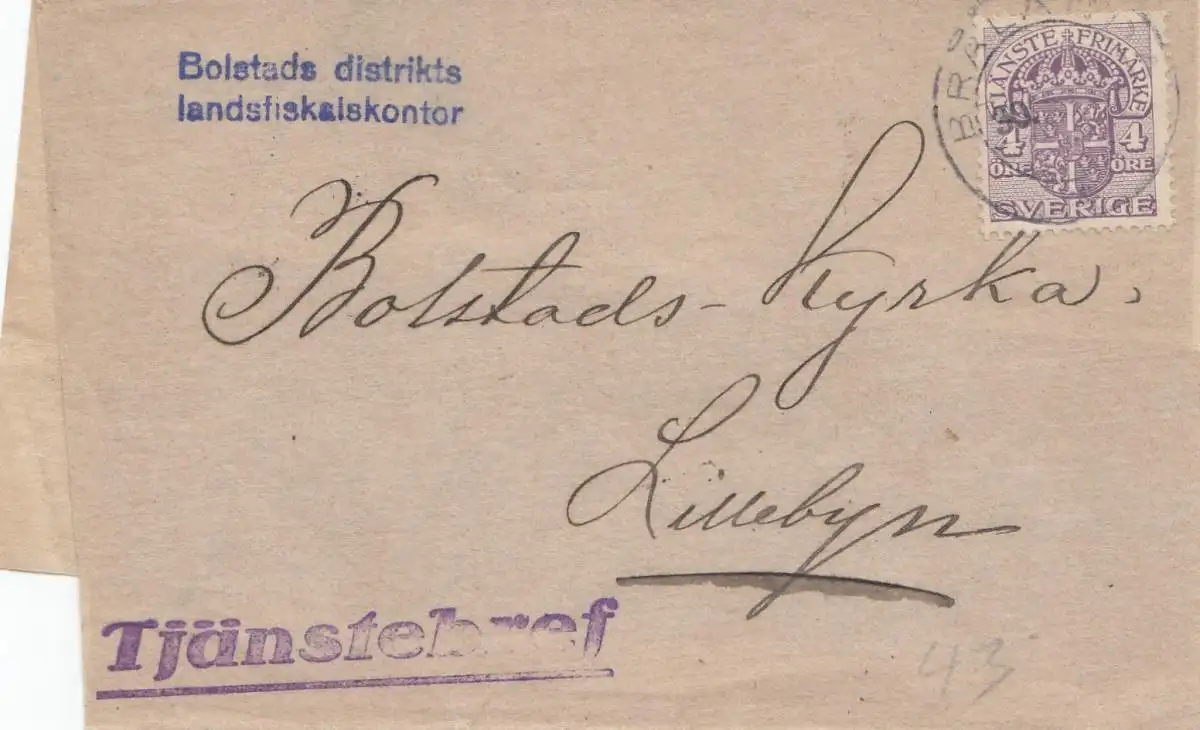 Bolstads distrikts
landsfiskalskontor
TJÄNSTE FRIMÄRKE
4 4
ÖRE ÖRE
SVERIGE
Bolstads-Kyrka,
Lillebyn
Tjänstebref
43